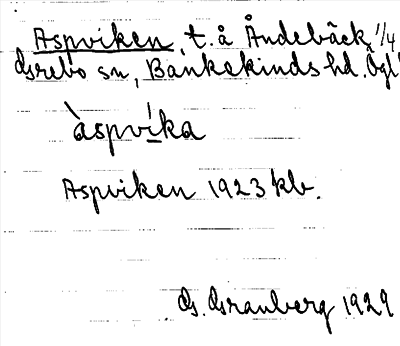 Aspviken, t. å Åndebäck, 1/4,
Grebo sn, Bankekinds hd. Ögl.
àspvi̲ka
Aspviken 1923 kb.
G. Granberg 1929